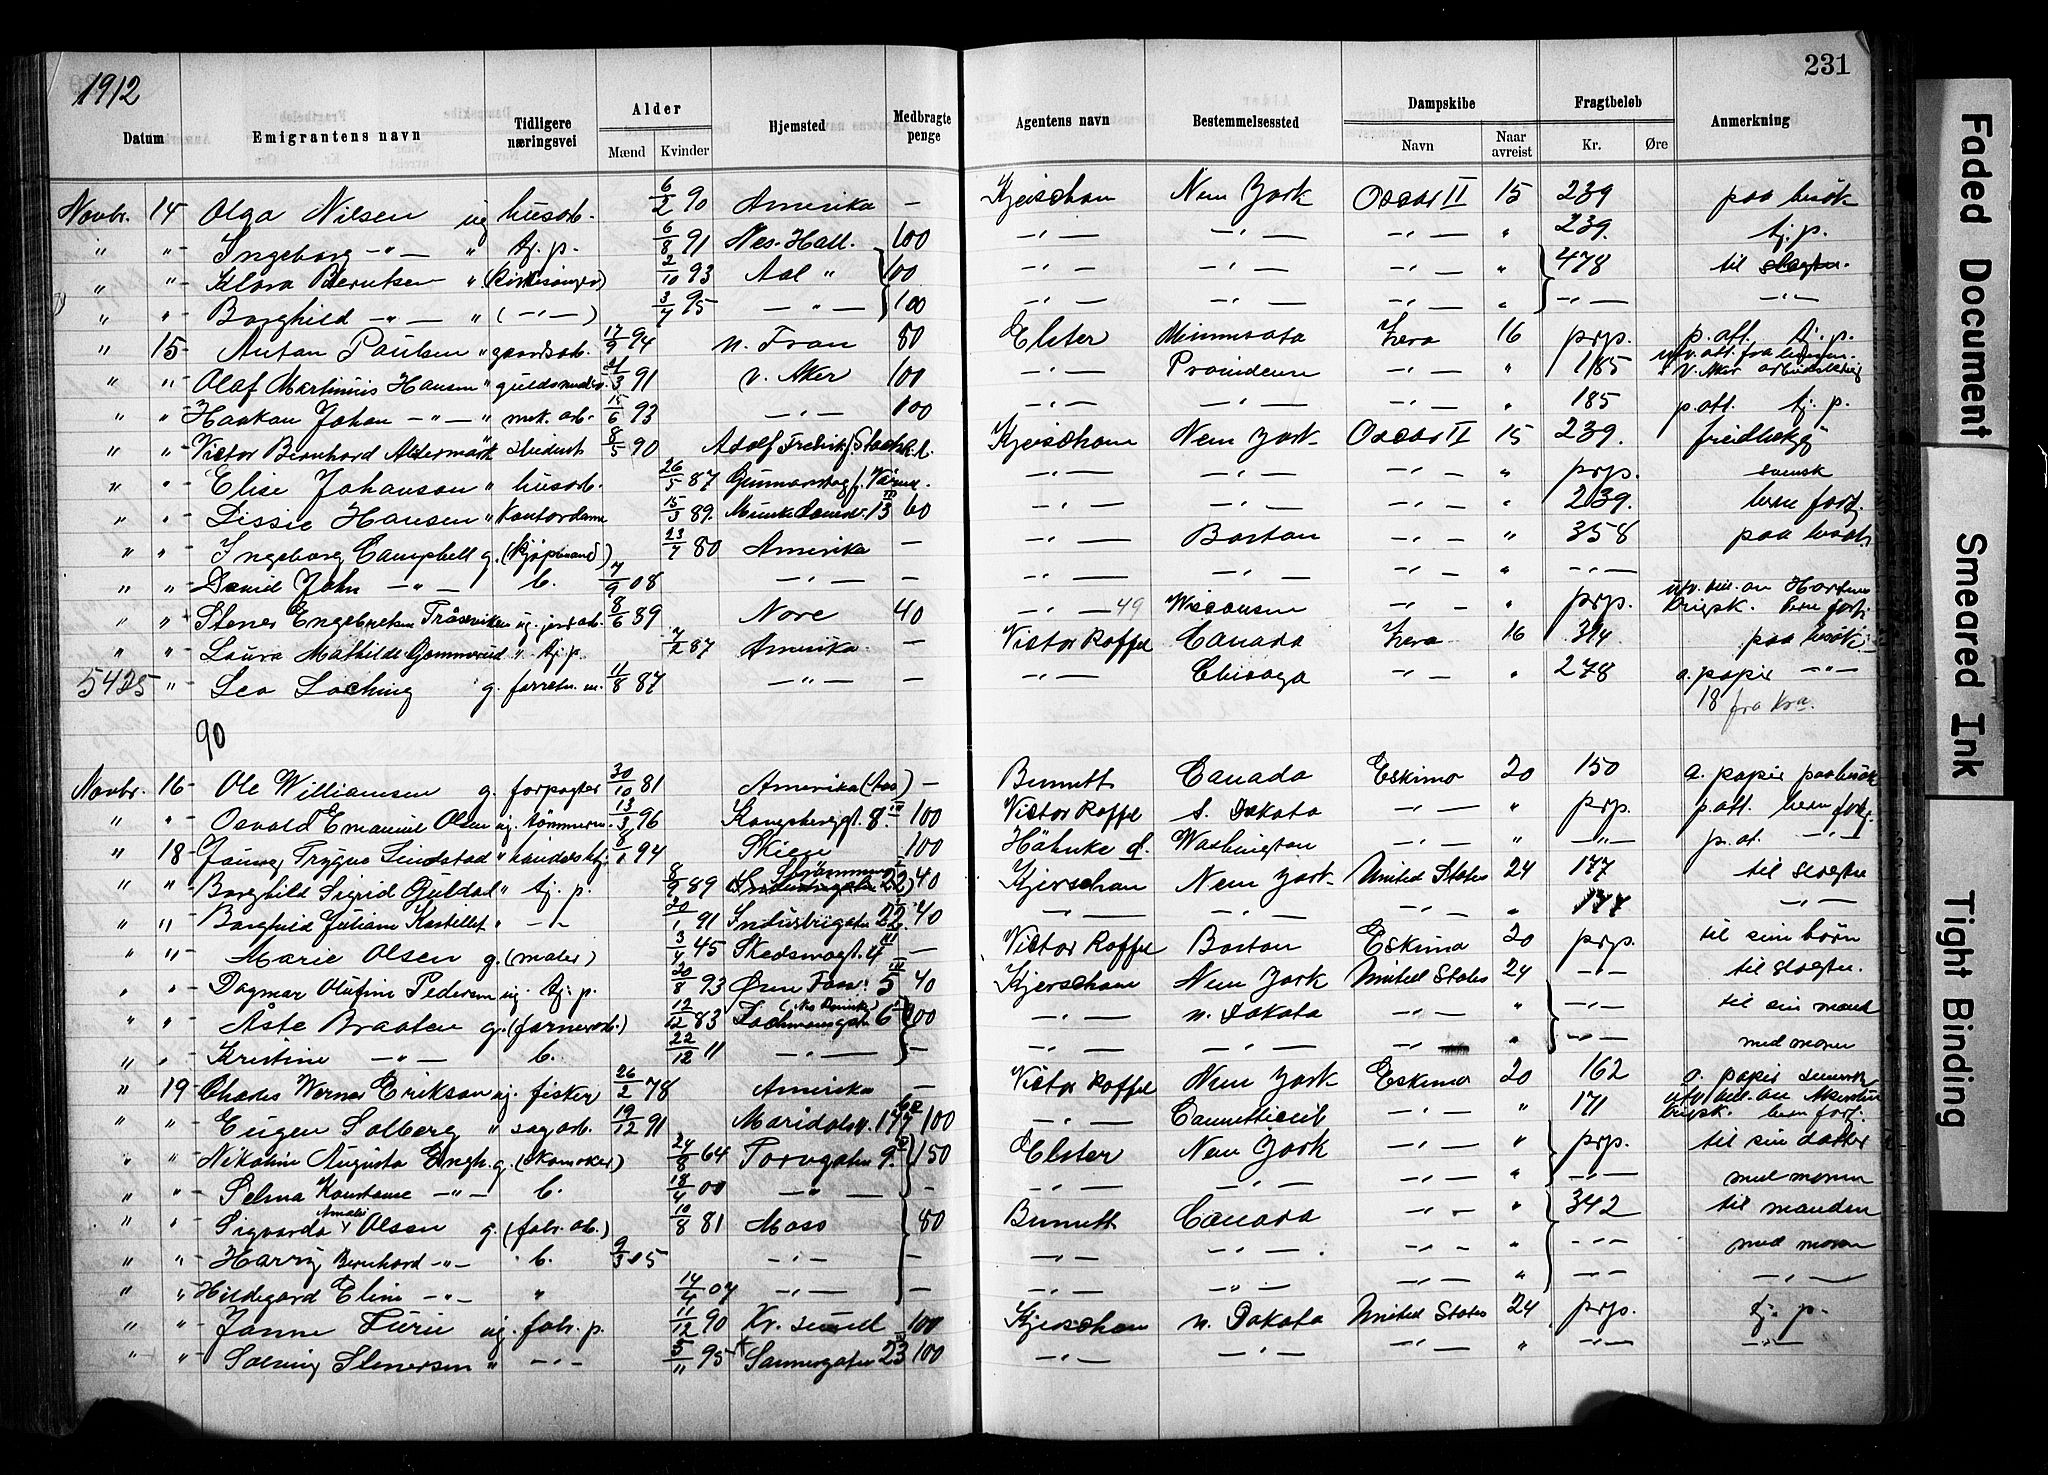 1912
231
Datum Emigrantens navn Tidligere næringsvei Alder Mænd Kvinder Hjemsted Medbragte penge Agentens navn Bestemmelsessted Dampskibe Navn Naar avreist Fragtbeløb Kr. Øre Anmerkning
Novbr. 14 Olga Nilsen ug husarb. 6/2 90 Amerika — Kjerschow New York Oscar II 15 239 paa besøk
" " Ingeborg —"— " tj. p. 6/8 91 Nes. Hall. 100 —"— —"— —"— " 239. tj. p.
" " Klara Berntsen " 2/10 93 Aal " 100 —"— —"— —"— " 478 til slægtn.
" " Borghild —"— " (—"—) 3/7 95 —"— 100 —"— —"— —"— " —"— —"—
" 15 Anton Paulsen " gaardsarb. 17/9 94 n. Fron 80 Elster Minnesota Zero 16 prp. p. att. tj. p.
" " Olaf Martinius Hansen " guldsmedsv. 21/3 91 v. Aker 100 —"— Providence —"— " 185 utv. att. fra v. Aker
" " Haakon Johan —"— " mek. arb. 15/6 93 —"— 100 —"— —"— —"— " 185 p. att. tj. p.
" " Victor Bernhard Aldermark student 8/5 90 Adolf Fredrik, Stockh. l. Kjerschow New York Oscar II 15 239.
" " Elise Johanson " husarb. 26/5 87 Gunnarskog, Värml. —"— —"— —"— " prp. svensk
" " Lissie Hansen " Kontordame 15/3 89. Munkedamsv. 13 III 60 —"— —"— —"— " 239. bere fortj.
" " Ingeborg Campbell g. (kjøpmand) 23/7 80 Amerika — —"— Boston —"— " 358 paa besøk
" " David John —"— b. 7/9 08 —"— — —"— —"— —"— " —"—
" " Stener Engebretsen Tråseviken ug. jordarb. 8/6 89 Nore 40 —"— 49 Wisconsin —"— " prp. utv. bev. an Hortens krigsk. bere fortj.
" " Laura Mathilde Gommerud " tj. p. 7/2 87 Amerika. — Victor Roffel Canada Zero 16 394 paa besøk
5425 " Leo Loching g. forretn. m. 11/8 87 —"— — —"— Chicago —"— " 278 a. papir —"—
18 fra Kra.
90
Novbr. 16 Ole Williamsen g. forpagter 30/10 81 Amerika (Aas) — Bennett Canada Eskimo 20 150 a. papir paa besøk
" " Osvald Emanuel Olsen ug. tømmerm. 13/3 96 Kongsbergt. 8. III 100 Victor Roffel S. Dakota —"— " prp. p. att. bere fortj.
" 18 Trygve Lindstad " handelsbtj. 8/1 94 Skien 100 Höhnke d. Washington —"— " —"— p. at. —"—
" " Borghild Sigrid Guldal " tj. p. 8/9 89 Strømmen Industrigaten 22 40 Kjerschow New York United States 24 177 til slægtn
" " Borghild Juliane Kastellet " —"— 20/1 91 Industrigaten 22 40 —"— —"— —"— " 177 —"—
" " Marie Olsen g. (maler) 3/4 45 Skedsmogt. 4 III — Victor Roffel Boston Eskimo 20 prp. til sine børn
" " Dagmar Olufine Pedersen ug. tj. p. 20/8 93 Ørn Foss. 5 III 40 Kjerschow New York United States 24 —"— til slægtn.
" " Åste Braaten g. (farmerarb.) 12/12 83 Lochmansgaten 6 100 —"— n. Dakota —"— " —"— til sin mand
" " Kristine —"— b. 22/12 11 —"— — —"— —"— —"— " —"— med moren
" 19 Charles Werner Erikson ug. fisker 26/2 78 Amerika — Victor Roffel New York Eskimo 20 162 a. papir svensk
" " Eugen Solberg " sagarb. 19/12 91 Maridalsv. 177 100 —"— Connetticut —"— " 171 utv. bev. an Akershus krigsk. bere fortj.
" " Nikoline Augusta Engh. g. (skomaker) 24/8 64 Torvgaten 9. II 150 Elster New York —"— " prp. til sin datter
" " Selma Konstanse —"— b. 18/4 00 —"— — —"— —"— —"— " —"— med moren
" " Sigvarda Amalie Olsen g. (fabr. arb.) 10/8 81 Moss 80 Bennett Canada —"— " 342 til manden
" " Harry Bernhard —"— " b. 9/3 05 —"— — —"— —"— —"— " —"— med moren
" " Hildegard Eline —"— " 14/4 07 —"— — —"— —"— " —"— —"—
" " Janna Furu ug. fabr. p. 11/12 90 Kr. sund 100 Kjerschow n. Dakota United States 24 prp. tj. p.
" " Solveig Stenersen " —"— 5/11 95 Sannergaten 23 IV 100 —"— —"— —"— " —"— —"—
Faded Document
Smeared Ink
Tight Binding